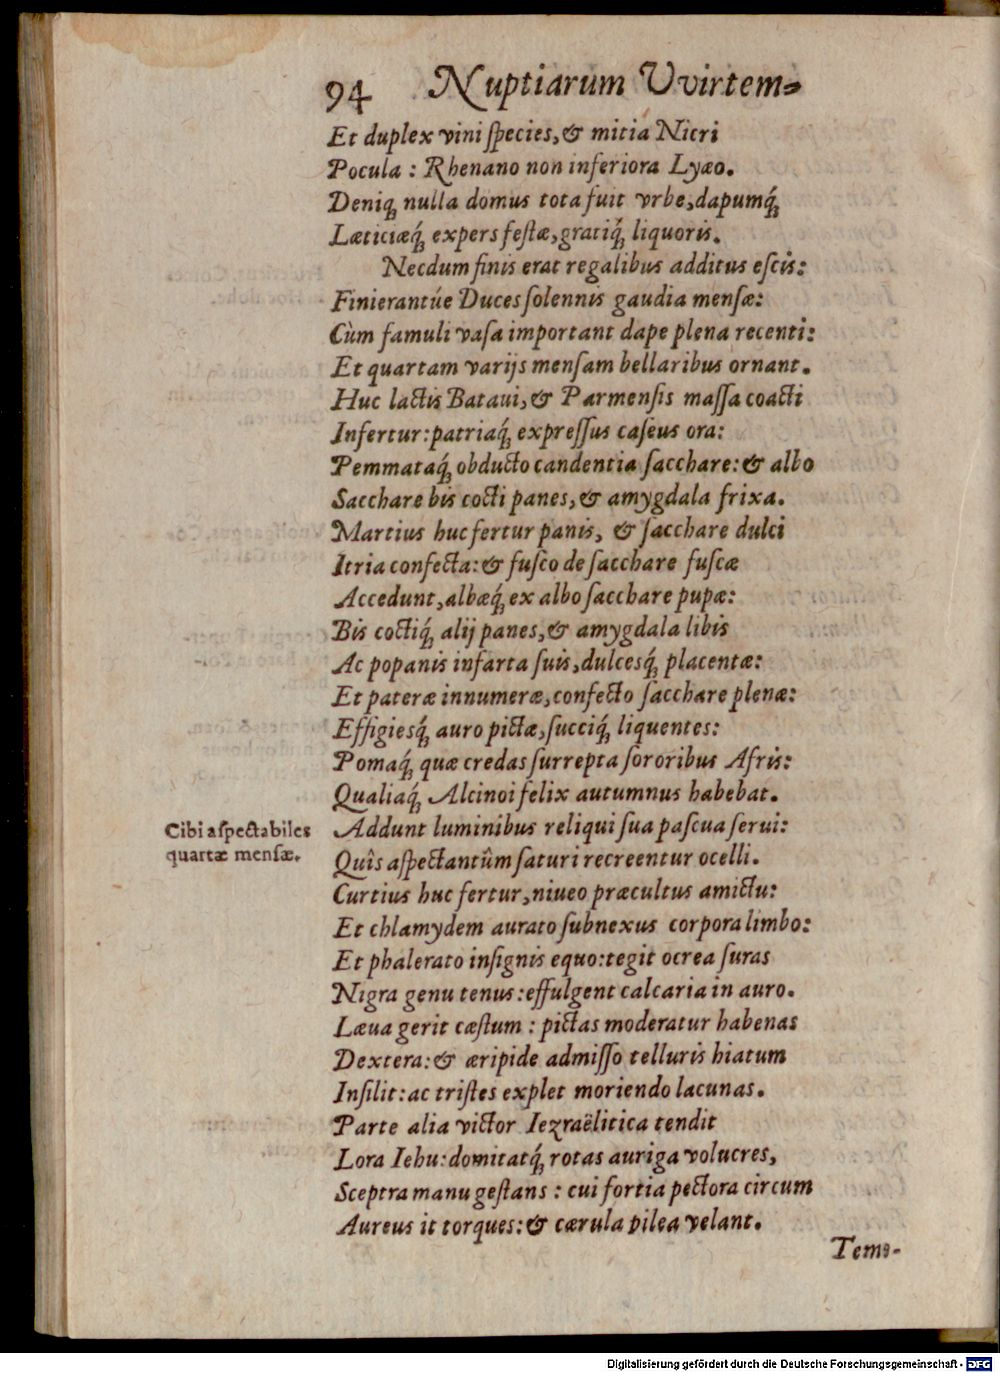 94 Nuptiarum Vvirtem-
Et duplex vini ſpecies, & mitia Nicri
Pocula: Rhenano non inferiora Lyæo.
Deniq́; nulla domus tota fuit vrbe, dapumq́;
Læticiæq́; expers feſtæ, gratiq́; liquoris.
Necdum finis erat regalibus additus eſcis:
Finierantúe Duces ſolennis gaudia menſæ:
Cùm famuli vaſa important dape plena recenti:
Et quartam varijs menſam bellaribus ornant.
Huc lactis Bataui, & Parmenſis maſſa coacti
Infertur: patriaq́; expreſſus caſeus ora:
Pemmataq́; obducto candentia ſacchare: & albo
Sacchare bis cocti panes, & amygdala frixa.
Martius huc fertur panis, & ſacchare dulci
Itria confecta: & fuſco de ſacchare fuſcæ
Accedunt, albæq́; ex albo ſacchare pupæ:
Bis coctiq́; alij panes, & amygdala libis
Ac popanis infarta ſuis, dulcesq́; placentæ:
Et pateræ innumeræ, confecto ſacchare plenæ:
Effigiesq́; auro pictæ, ſucciq́; liquentes:
Pomaq́; quæ credas ſurrepta ſororibus Afris:
Qualiaq́; Alcinoi felix autumnus habebat.
Cibi aſpectabiles
quartæ menſæ.
Addunt luminibus reliqui ſua paſcua ſerui:
Quîs aſpectantûm ſaturi recreentur ocelli.
Curtius huc fertur, niueo præcultus amictu:
Et chlamydem aurato ſubnexus corpora limbo:
Et phalerato inſignis equo: tegit ocrea ſuras
Nigra genu tenus: effulgent calcaria in auro.
Læua gerit cæſtum: pictas moderatur habenas
Dextera: & æripide admiſſo telluris hiatum
Inſilit: ac triſtes explet moriendo lacunas.
Parte alia victor Iezraëlitica tendit
Lora Iehu: domitatq́; rotas auriga volucres,
Sceptra manu geſtans: cui fortia pectora circum
Aureus it torques: & cærula pilea velant.
Tem-
Digitalisierung gefördert durch die Deutsche Forschungsgemeinschaft - DFG